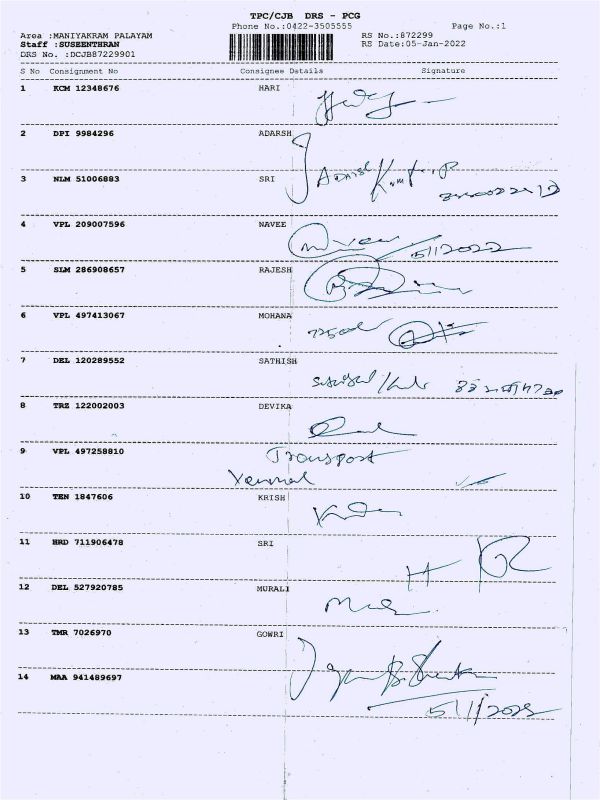 TPC/CJB DRS - PCG
Phone No.:0422-3505555 Page No.:1
Area :MANIYAKRAM PALAYAM RS No.:872299
Staff :SUSEENTHRAN RS Date:05-Jan-2022
DRS No. :DCJB87229901
S No Consignment No Consignee Details Signature
1 KCM 12348676 HARI
2 DPI 9984296 ADARSH
3 NLM 51006883 SRI
4 VPL 209007596 NAVEE
5/1/2022
5 SLM 286908657 RAJESH
6 VPL 497413067 MOHANA
7 DEL 120289552 SATHISH
8 TRZ 122002003 DEVIKA
9 VPL 497258810 Transport
10 TEN 1847606 KRISH
11 HRD 711906478 SRI
12 DEL 527920785 MURALI
13 TMR 7026970 GOWRI
14 MAA 941489697